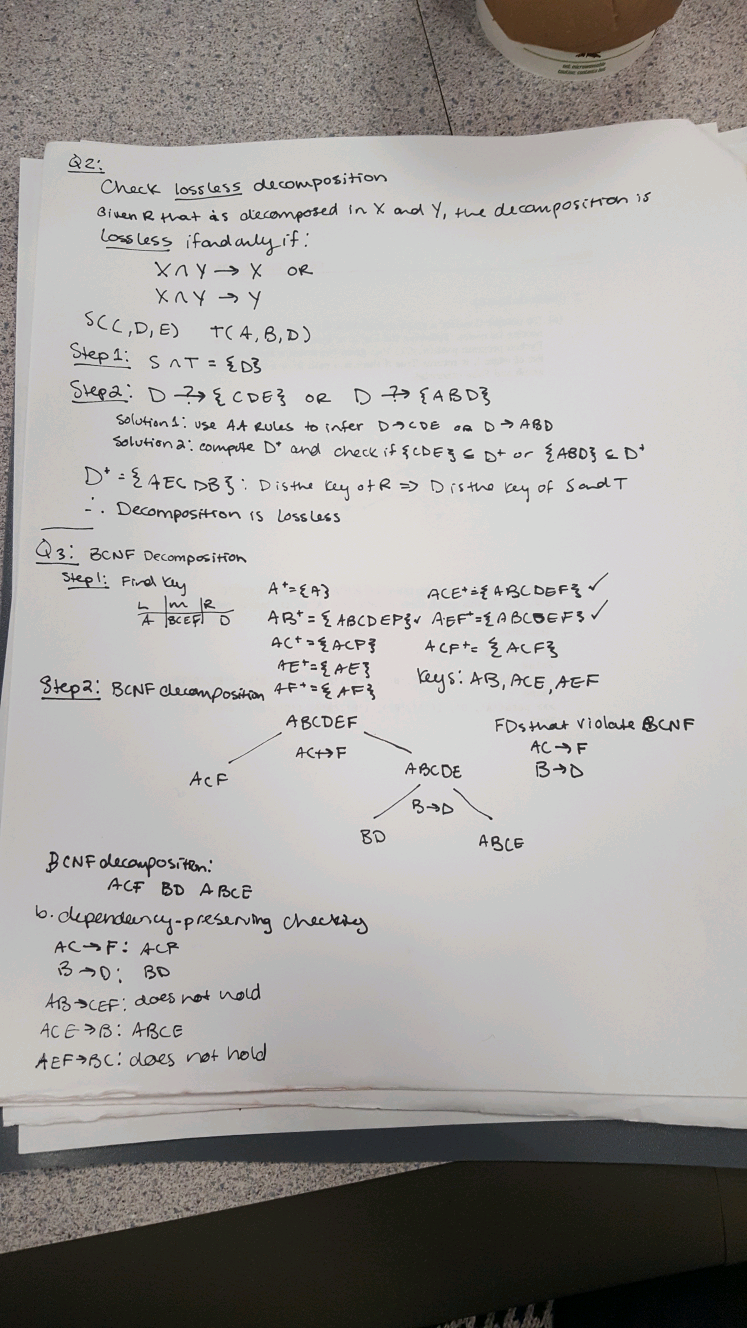 Q2:
Check lossless decomposition
Given R that is decomposed in X and Y, the decomposition is
Lossless if and only if:
X ∩ Y → X OR
X ∩ Y → Y
S(C,D,E) T(A,B,D)
Step 1: S ∩ T = {D}
Step 2: D ?→ {CDE} OR D ?→ {ABD}
Solution 1: use AA Rules to infer D→CDE OR D→ABD
Solution 2: compute D⁺ and check if {CDE} ⊆ D⁺ or {ABD} ⊆ D⁺
D⁺ = {AECDB}: D is the key of R ⇒ D is the key of S and T
∴ Decomposition is Lossless
Q3: BCNF Decomposition
Step 1: Find key
L | M | R
A | BCEF | D
A⁺={A}
AB⁺={ABCDEF}✓
AC⁺={ACF}
AE⁺={AE}
AF⁺={AF}
ACE⁺={ABCDEF}✓
AEF⁺={ABCDEF}✓
ACF⁺={ACF}
Keys: AB, ACE, AEF
Step 2: BCNF decomposition
ABCDEF
AC→F
ACF
ABCDE
B→D
BD
ABCE
FDs that violate BCNF
AC→F
B→D
BCNF decomposition:
ACF BD ABCE
b. dependency-preserving checking
AC→F: ACF
B→D: BD
AB→CEF: does not hold
ACE→B: ABCE
AEF→BC: does not hold